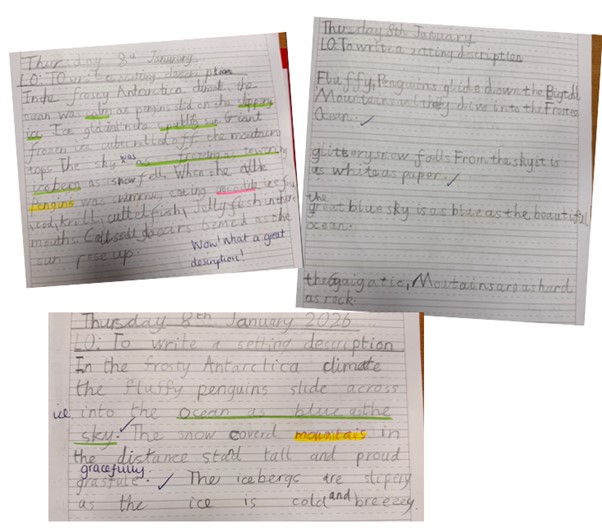 Thursday 8th January
LO: TO write a setting description
In the frosey Antarctica climat the
ocean was calm as pengins slid on the slippery
ice. Ice glaimd in the sun Giant
frozen ice cubes rolled off the mountains
tops. The sky was as freezing as towering
icebergs as snow fell. When the
Pengins was swimming, eating fish
cod, krill, cuttel fish, Jelly fish in there
mouths. as the
sun rose up.
Wow! What a great
description!
Thursday 8th January
LO: To write a setting description
Fluffy, Penguins glide down the Big tall
Mountains and they drive into the Frosted
Ocean.
glittery snow falls From the sky it is
as white as paper.
the
great blue sky is as blue as the beautiful
ocean.
the Gaigatic, Mountains are as hard
as rock.
Thursday 8th January 2026
LO: To write a setting description
In the frosty Antarctica climate
the fluffy penguins slide across
ice into the ocean as blue as the
sky. The snow coverd mountais in
the distance stad tall and proud
gracefully.
grasfule. The icebergs are slipery
as the ice is cold and breezey.